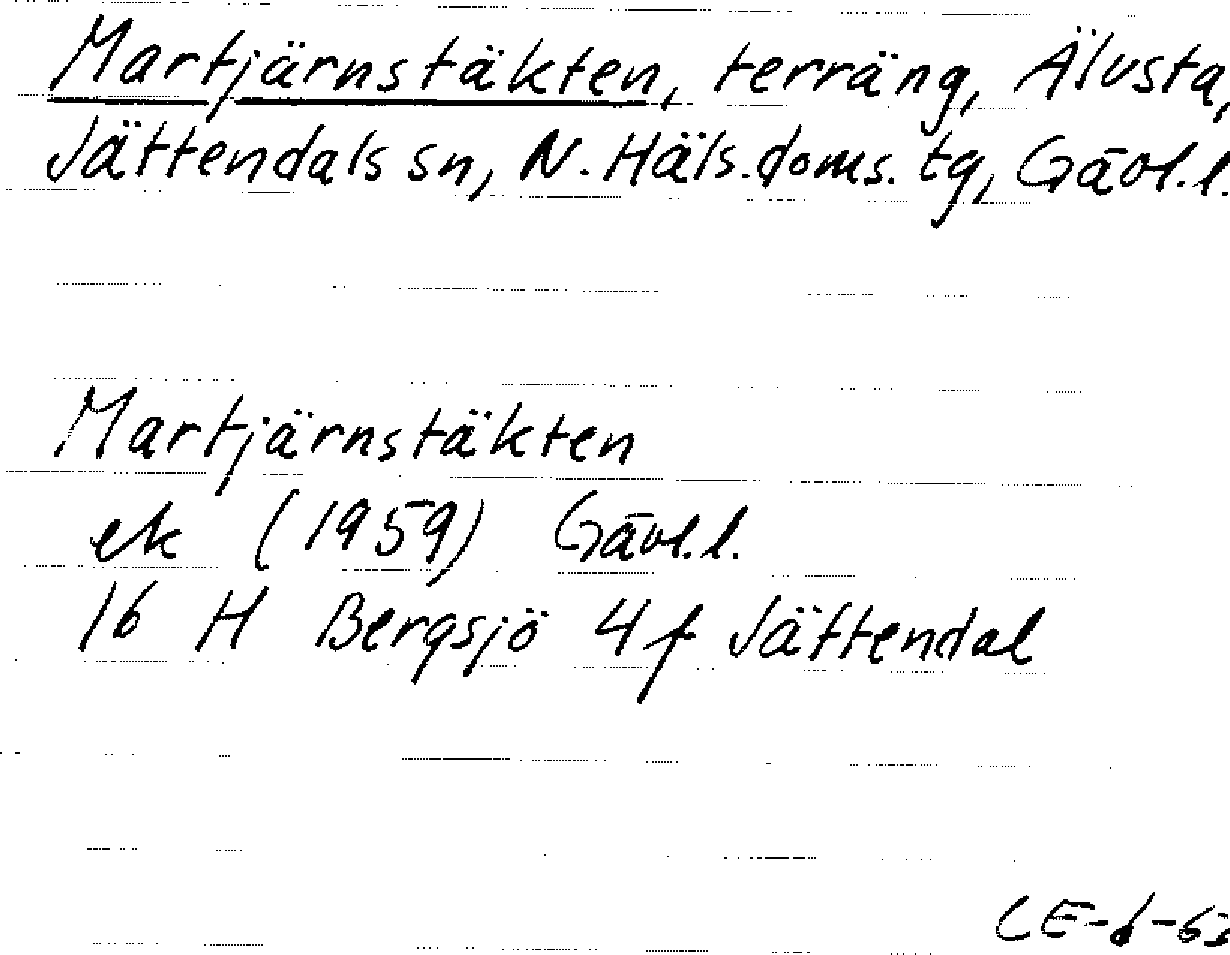 Martjärnstäkten, terräng, Älvsta,
Jättendals sn, N. Häls. doms. tg, Gävl. l.
Martjärnstäkten
ek (1959) Gävl. l.
16 H Bergsjö 4 f Jättendal